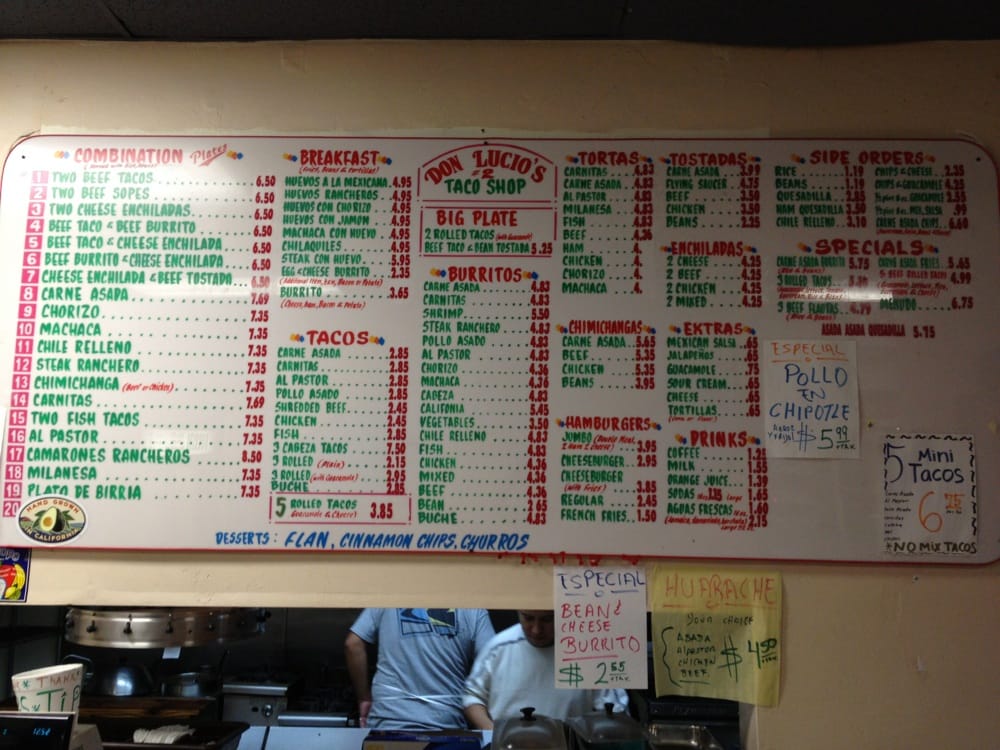 COMBINATION Plates
1 TWO BEEF TACOS 6.50
2 TWO BEEF SOPES 6.50
3 TWO CHEESE ENCHILADAS 6.50
4 BEEF TACO & BEEF BURRITO 6.50
5 BEEF TACO & CHEESE ENCHILADA 6.50
6 BEEF BURRITO & CHEESE ENCHILADA 6.50
7 CHEESE ENCHILADA & BEEF TOSTADA 6.50
8 CARNE ASADA 7.69
9 CHORIZO 7.35
10 MACHACA 7.35
11 CHILE RELLENO 7.35
12 STEAK RANCHERO 7.35
13 CHIMICHANGA (Beef or Chicken) 7.35
14 CARNITAS 7.69
15 TWO FISH TACOS 7.35
16 AL PASTOR 7.35
17 CAMARONES RANCHEROS 8.50
18 MILANESA 7.35
19 PLATO DE BIRRIA 7.35
20
HAND GROWN
IN CALIFORNIA
BREAKFAST
(rice, beans & tortillas)
HUEVOS A LA MEXICANA 4.95
HUEVOS RANCHEROS 4.95
HUEVOS CON CHORIZO 4.95
HUEVOS CON JAMON 4.95
MACHACA CON HUEVO 4.95
CHILAQUILES 4.95
STEAK CON HUEVO 5.95
EGG & CHEESE BURRITO 2.35
(Additional item, ham, Bacon or Potato)
BURRITO 3.65
(Cheese, ham, Bacon & Potato)
TACOS
CARNE ASADA 2.85
CARNITAS 2.85
AL PASTOR 2.85
POLLO ASADO 2.85
SHREDDED BEEF 2.45
CHICKEN 2.45
FISH 2.85
3 CABEZA TACOS 7.50
3 ROLLED (Plain) 2.15
3 ROLLED (with Guacamole) 2.95
BUCHE 2.85
5 ROLLED TACOS 3.85
Guacamole & Cheese)
DESSERTS: FLAN, CINNAMON CHIPS, CHURROS
DON LUCIO'S
#2
TACO SHOP
BIG PLATE
2 ROLLED TACOS (with Guacamole)
BEEF TACO & BEAN TOSTADA 5.25
BURRITOS
CARNE ASADA 4.83
CARNITAS 4.83
SHRIMP 5.50
STEAK RANCHERO 4.83
POLLO ASADO 4.83
AL PASTOR 4.83
CHORIZO 4.36
MACHACA 4.36
CABEZA 4.83
CALIFONIA 5.45
VEGETABLES 3.50
CHILE RELLENO 4.83
FISH 4.83
CHICKEN 4.36
MIXED 4.36
BEEF 4.36
BEAN 2.65
BUCHE 4.83
TORTAS
CARNITAS 4.83
CARNE ASADA 4.83
AL PASTOR 4.83
MILANESA 4.83
FISH 4.83
BEEF 4.36
HAM 4.
CHICKEN 4.
CHORIZO 4.
MACHACA 4.
CHIMICHANGAS
CARNE ASADA 5.65
BEEF 5.35
CHICKEN 5.35
BEANS 3.95
HAMBURGERS
JUMBO (Double Meat, Ham & Cheese) 3.95
CHEESEBURGER 2.95
CHEESEBURGER (with Fries) 3.85
REGULAR 2.45
FRENCH FRIES 1.50
TOSTADAS
CARNE ASADA 3.99
FLYING SAUCER 4.75
BEEF 3.50
CHICKEN 3.50
BEANS 2.25
ENCHILADAS
2 CHEESE 4.25
2 BEEF 4.25
2 CHICKEN 4.25
2 MIXED 4.25
EXTRAS
MEXICAN SALSA .65
JALAPEÑOS .65
GUACAMOLE .75
SOUR CREAM .65
CHEESE .65
TORTILLAS .65
(Corn or Flour)
DRINKS
COFFEE 1.25
MILK 1.55
ORANGE JUICE 1.39
SODAS Large 1.65
AGUAS FRESCAS 1.60
(Jamaica, tamarindo, horchata) Large 2.15
SIDE ORDERS
RICE 1.19
BEANS 1.19
QUESADILLA 2.50
HAM QUESADILLA 3.50
CHILE RELLENO 3.10
CHIPS & CHEESE 2.35
CHIPS & GUACAMOLE 4.25
CARNE ASADA CHIPS 6.60
SPECIALS
CARNE ASADA BURRITO 5.75
(Rice & Beans)
3 ROLLED TACOS
3 BEEF FLAUTAS 4.99
(Rice & Beans)
CARNE ASADA FRIES 5.65
5 BEEF ROLLED TACOS 4.99
MENUDO 6.75
ASADA ASADA QUESADILLA 5.75
ESPECIAL
POLLO
EN
CHIPOTLE
ARROZ
Y FRIJOL $5.99
+TAX.
5 Mini
Tacos
6.75
*NO MIX TACOS
ESPECIAL
BEAN &
CHEESE
BURRITO
$ 2.55
+TAX.
HUARACHE
YOUR CHOICE
ASADA
ALPASTOR
CHICKEN
BEEF.
$ 4.50
+TAX
THANKS
TIP